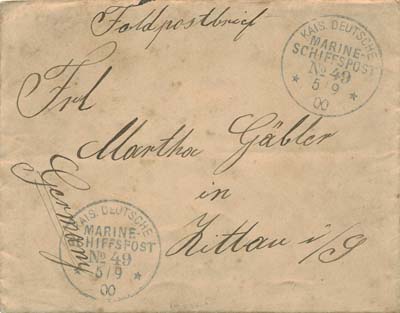 Feldpostbrief
KAIS. DEUTSCHE
MARINE-
SCHIFFSPOST
No 49
* 5/9 *
00
Frl
Martha Gäbler
in
Zittau i/S
Germany
KAIS. DEUTSCHE
MARINE-
SCHIFFSPOST
No 49
5/9 *
00